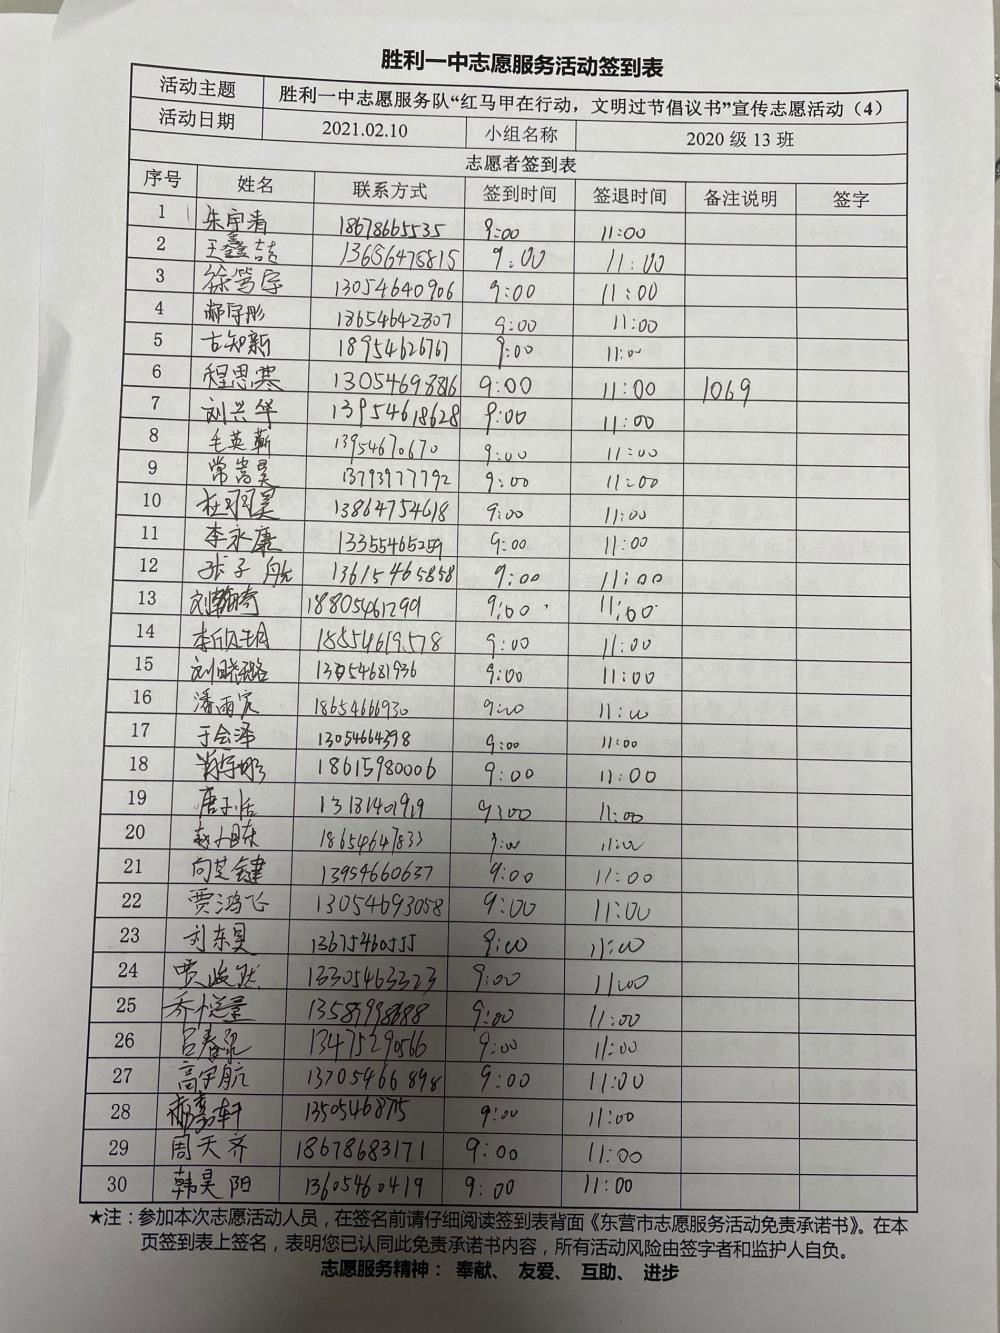 胜利一中志愿服务活动签到表
活动主题 胜利一中志愿服务队“红马甲在行动，文明过节倡议书”宣传志愿活动（4）
活动日期 2021.02.10 小组名称 2020 级 13 班
志愿者签到表
序号 姓名 联系方式 签到时间 签退时间 备注说明 签字
1 朱宇清 18678665535 9:00 11:00
2 王鑫喆 13656475815 9:00 11:00
3 徐笃宇 13054640906 9:00 11:00
4 郝宇彤 18654642807 9:00 11:00
5 古知新 18954626767 9:00 11:00
6 程思寒 13054698816 9:00 11:00 1069
7 刘兴华 13954618628 9:00 11:00
8 毛英蕲 13954670670 9:00 11:00
9 常嵩昊 13793977792 9:00 11:00
10 杜珂昊 13864754618 9:00 11:00
11 李永康 13355465259 9:00 11:00
12 张子航 13615465858 9:00 11:00
13 刘翰奇 18805461299 9:00 11:00
14 李欣玥 18854619578 9:00 11:00
15 刘晓璐 13054681936 9:00 11:00
16 潘雨宸 18654666930 9:00 11:00
17 于会泽 13054664398 9:00 11:00
18 18615980006 9:00 11:00
19 唐子恬 13181401919 9:00 11:00
20 18654647833 9:00 11:00
21 向芝键 13954660637 9:00 11:00
22 贾鸿飞 13054693058 9:00 11:00
23 刘东昊 13675460555 9:00 11:00
24 贾峻 13305463323 9:00 11:00
25 乔悦量 13589998688 9:00 11:00
26 吕春 13475290566 9:00 11:00
27 高宇航 13705466898 9:00 11:00
28 轩 1350546875 9:00 11:00
29 周天齐 18678683171 9:00 11:00
30 韩昊阳 13605460419 9:00 11:00
★注：参加本次志愿活动人员，在签名前请仔细阅读签到表背面《东营市志愿服务活动免责承诺书》。在本
页签到表上签名，表明您已认同此免责承诺书内容，所有活动风险由签字者和监护人自负。
志愿服务精神： 奉献、 友爱、 互助、 进步